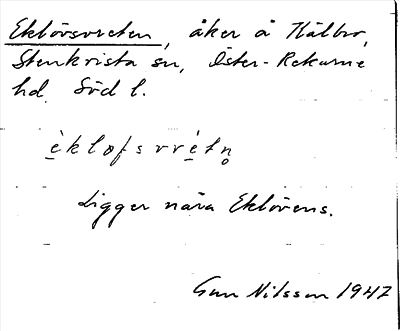 Eklövsvreten, åker å Hälbro,
Stenkvista sn, Öster-Rekarne
hd. Söd l.
è k l ø f s v r è t n̥
Ligger nära Eklövens.
Gun Nilsson 1947